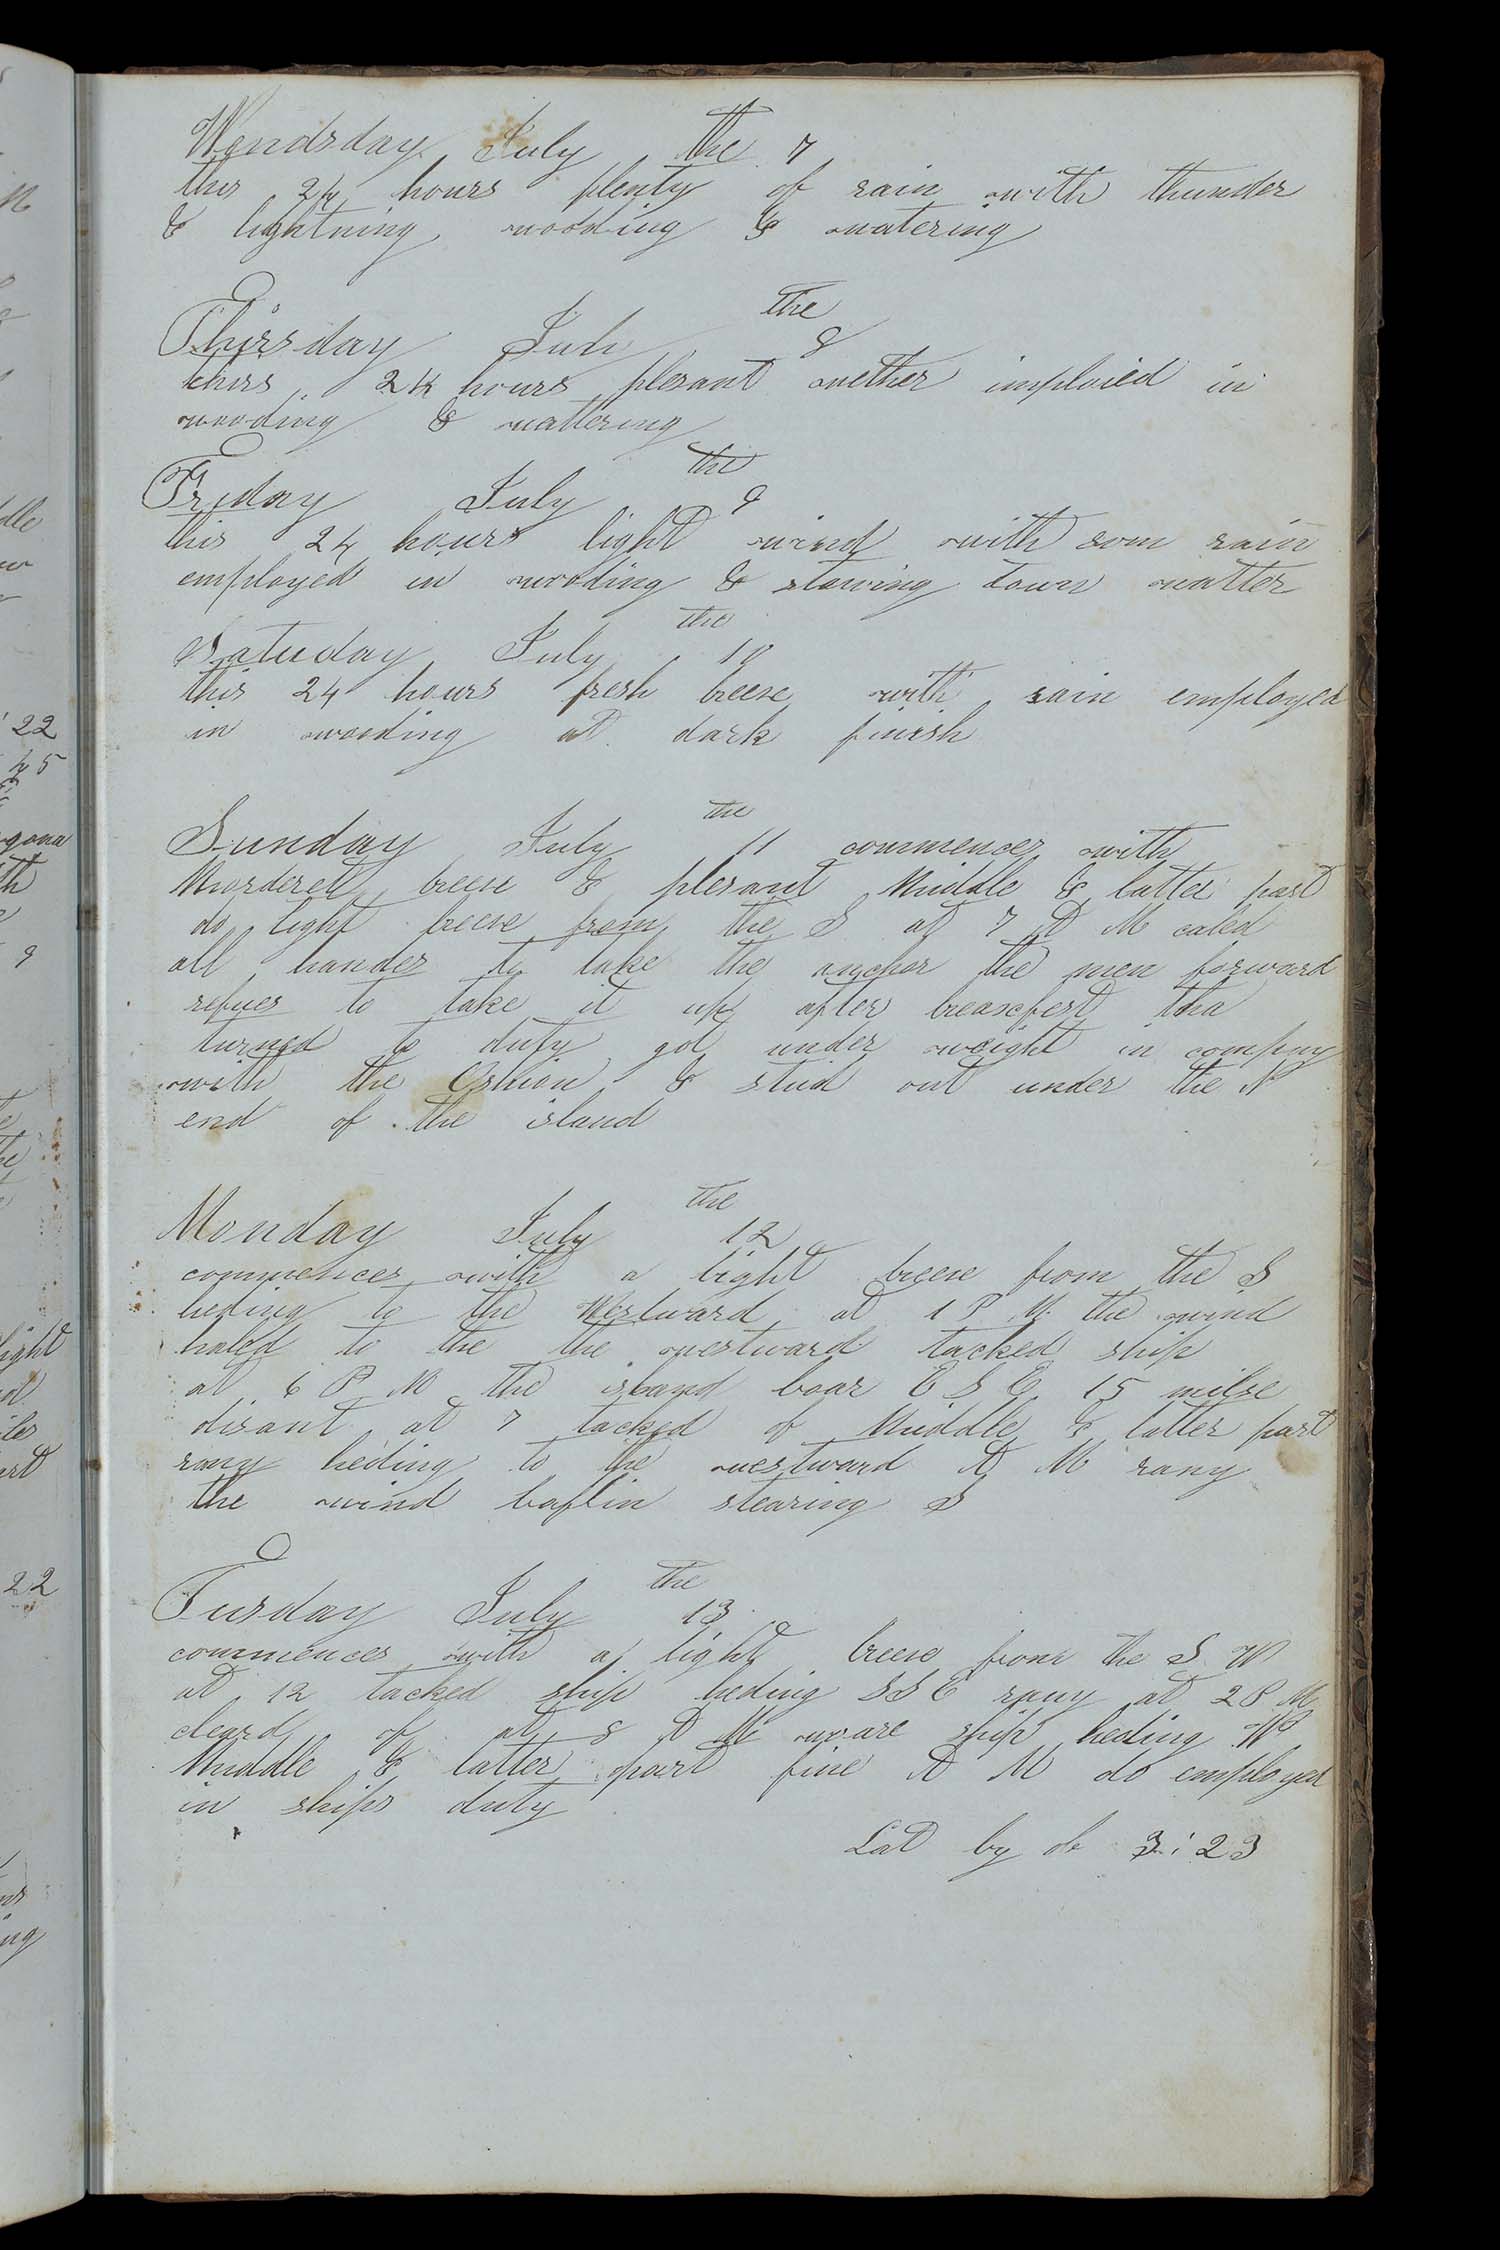 Wendsday July the 7
this 24 hours plenty of rain with thunder
& lightning wooding & watering
Thirsday July the 8
this 24 hours plesant wether imploied in
wooding & wattering
Friday July the 9
this 24 hours light wind with som rain
employed in wooding & stowing down watter
Satuday July the 10
this 24 hours fresh breese with rain employed
in wooding at dark finish
Sunday July the 11 commences with
Morderet breese & plesant Middle & latter part
do light breese from the S at 7 A M caled
all handes to take the anchor the men forward
refues to take it up after breaxfest tha
turned to duty got under weight in compny
with the & stud out under the N
end of the island
Monday July the 12
commences with a light breese from the S
heding to the Westward at 1 P M the wind
haled to the the westward tacked ship
at 6 P M the island boar E S E 15 milse
disant at 7 tacked of Middle & latter part
rany heding to the westward A M rany
the wind baflin stearing S
Tusday July the 13
commences with a light breese from the S W
at 12 tacked ship heding S S E rany at 2 P M
cleard of at 8 A M ware ship heding W
Middle & latter part fine A M do employed
in ships duty
Lat by ob 3:23
22
45
gona
th
9
22